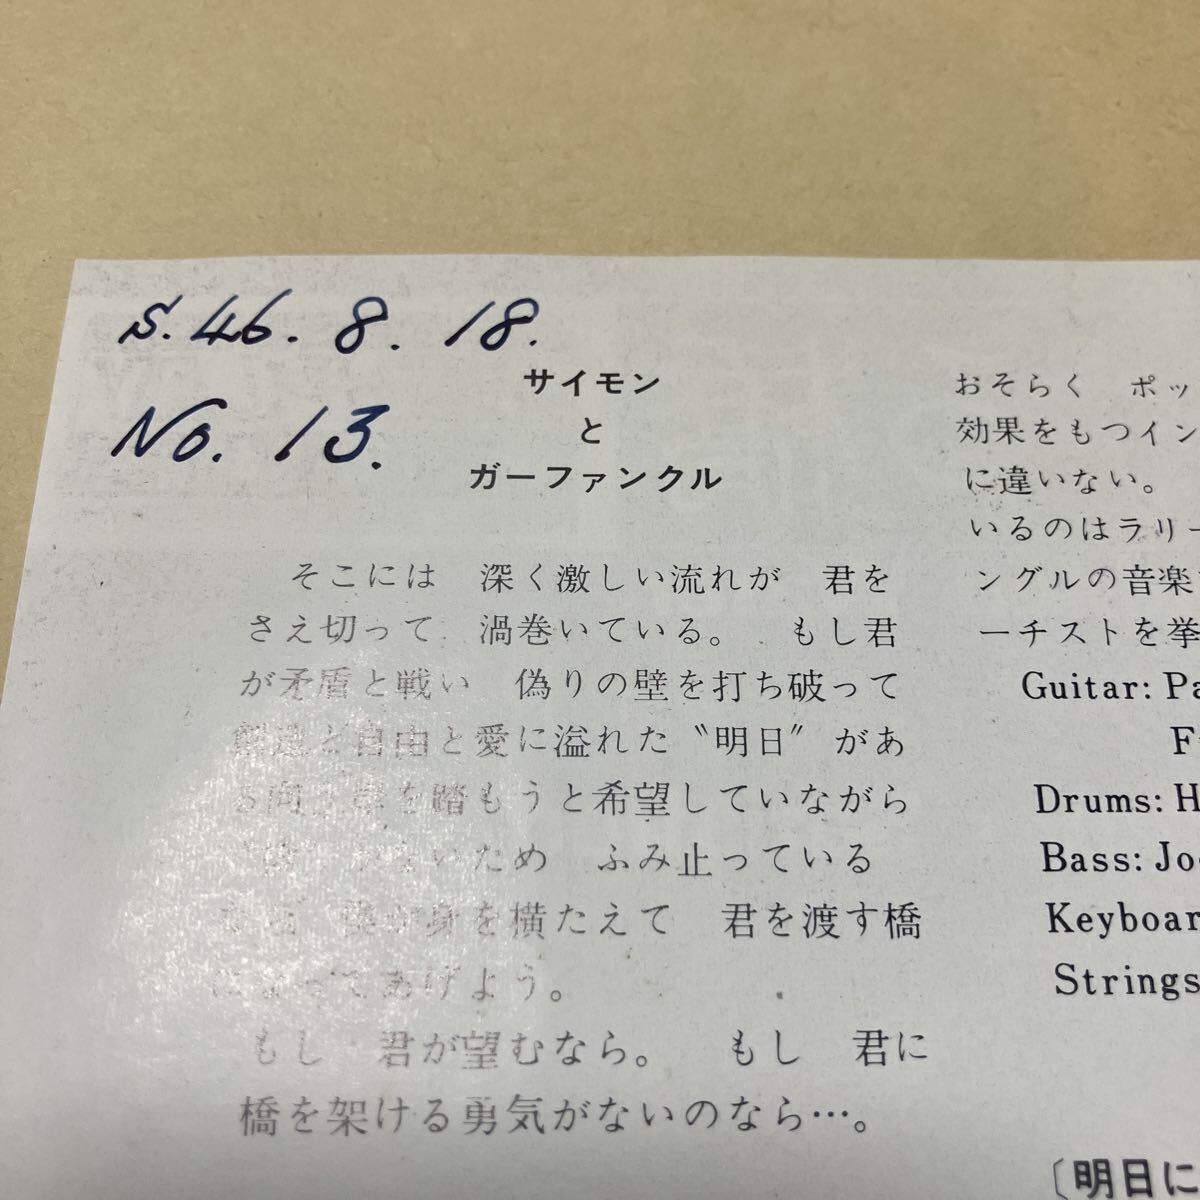 S.46.8.18.
No.13.
サイモン
と
ガーファンクル
そこには 深く激しい流れが 君を
さえ切って 渦巻いている。 もし君
が矛盾と戦い 偽りの壁を打ち破って
創造と自由と愛に溢れた〝明日〟があ
る向う岸を踏もうと希望していながら
ないため ふみ止っている
僕が身を横たえて 君を渡す橋
になってあげよう。
もし 君が望むなら。 もし 君に
橋を架ける勇気がないのなら…。
おそらく ポッ
効果をもつイン
に違いない。
いるのはラリー
ングルの音楽
ーチストを挙
Guitar: Pa
F
Drums: H
Bass: Jo
Keyboar
Strings
〔明日に